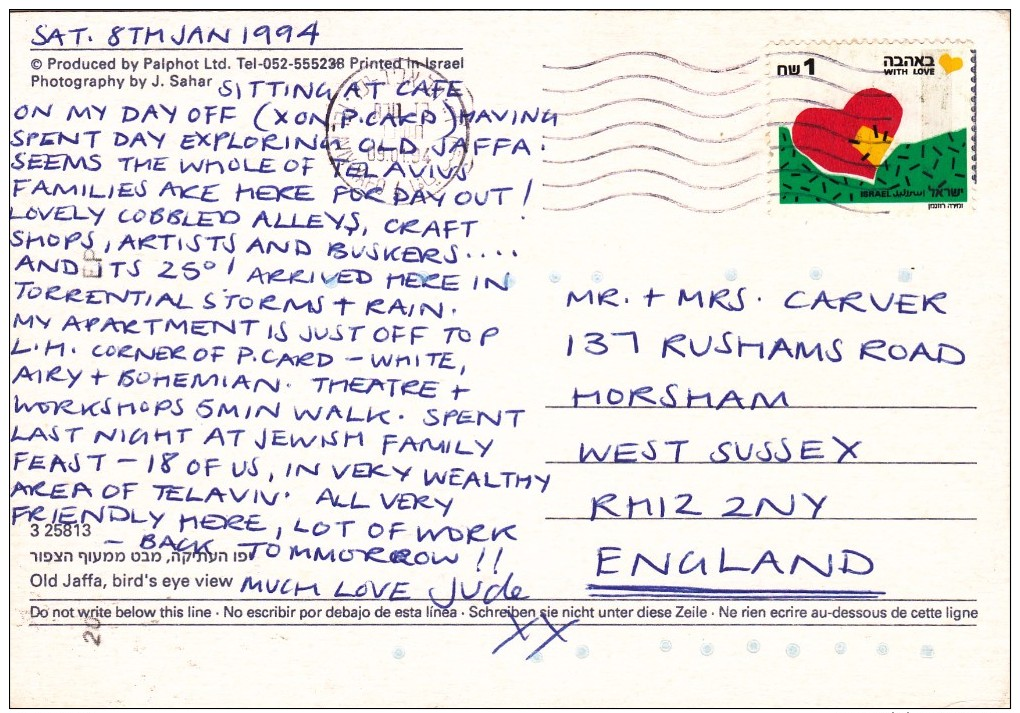 SAT. 8TH JAN 1994
© Produced by Palphot Ltd. Tel-052-555238 Printed in Israel
Photography by J. Sahar
SITTING AT CAFE
ON MY DAY OFF (X ON P.CARD) HAVING
SPENT DAY EXPLORING OLD JAFFA.
SEEMS THE WHOLE OF TELAVIVS
FAMILIES ARE HERE FOR DAY OUT!
LOVELY COBBLED ALLEYS, CRAFT
SHOPS, ARTISTS AND BUSKERS....
AND ITS 25°! ARRIVED HERE IN
TORRENTIAL STORMS + RAIN.
MY APARTMENT IS JUST OFF TOP
L.H. CORNER OF P.CARD - WHITE,
AIRY + BOHEMIAN. THEATRE +
WORKSHOPS 5MIN WALK. SPENT
LAST NIGHT AT JEWISH FAMILY
FEAST - 18 OF US, IN VERY WEALTHY
AREA OF TELAVIV. ALL VERY
FRIENDLY HERE, LOT OF WORK
- BACK TOMMORROW!!
MUCH LOVE Jude
XX
3 25813
יפו העתיקה, מבט ממעוף הצפור
Old Jaffa, bird's eye view
Do not write below this line · No escribir por debajo de esta línea · Schreiben sie nicht unter diese Zeile · Ne rien ecrire au-dessous de cette ligne
20
EP
09.01.94
1 שח
באהבה
WITH LOVE
ISRAEL اسرائيل ישראל
MR. + MRS. CARVER
137 RUSHAMS ROAD
HORSHAM
WEST SUSSEX
RH12 2NY
ENGLAND